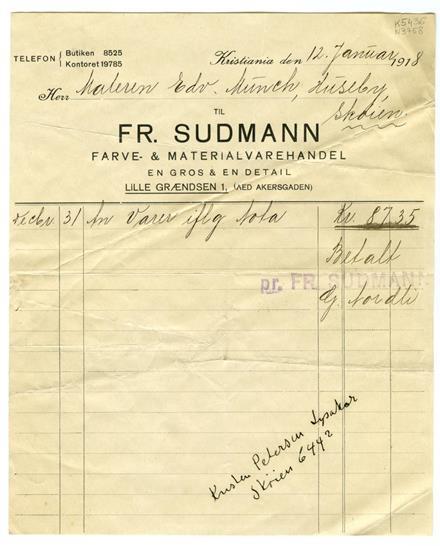 K5436
N3758
TELEFON
Butiken 8525
Kontoret 19785
Kristiania den 12. Januar 1918
Herr Maleren Edv. Munch, Huseby,
Skøien.
TIL
FR. SUDMANN
FARVE- & MATERIALVAREHANDEL
EN GROS & EN DETAIL
LILLE GRÆNDSEN 1, (VED AKERSGADEN)
Decbr. 31 An Varer iflg Nota Kr. 87.35
Betalt
pr. FR. SUDMANN
G. Nordli
Kristen Petersen Lysaker
Sköien 6442